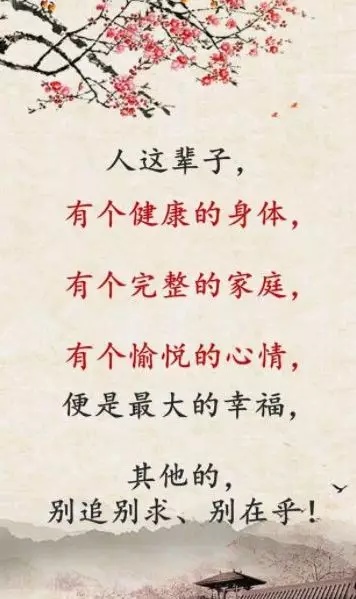 人这辈子，
有个健康的身体，
有个完整的家庭，
有个愉悦的心情，
便是最大的幸福，
其他的，
别追别求、别在乎！